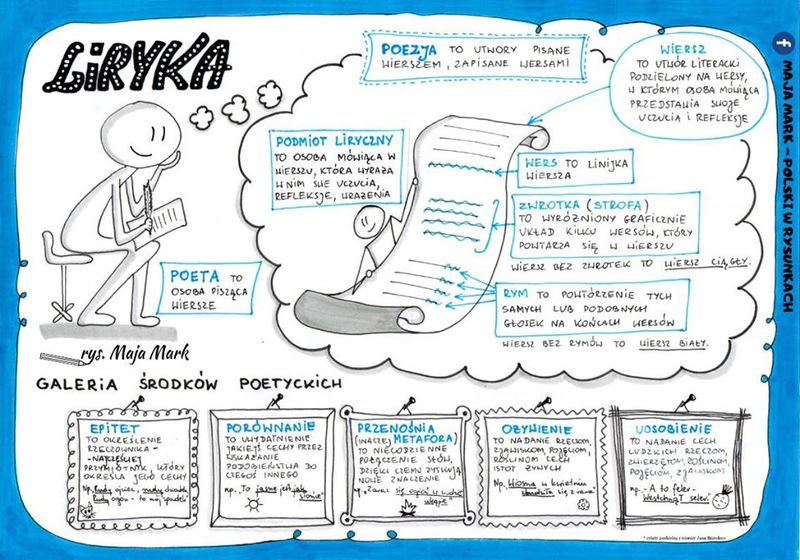 LIRYKA
POEZJA TO UTWORY PISANE
WIERSZEM, ZAPISANE WERSAMI
WIERSZ
TO UTWÓR LITERACKI
PODZIELONY NA WERSY,
W KTÓRYM OSOBA MÓWIĄCA
PRZEDSTAWIA SWOJE
UCZUCIA I REFLEKSJE
MAJA MARK – POLSKI W RYSUNKACH
PODMIOT LIRYCZNY
TO OSOBA MÓWIĄCA W
WIERSZU, KTÓRA WYRAŻA
W NIM SWE UCZUCIA,
REFLEKSJE, WRAŻENIA
WERS TO LINIJKA
WIERSZA
ZWROTKA (STROFA)
TO WYRÓŻNIONY GRAFICZNIE
UKŁAD KILKU WERSÓW, KTÓRY
POWTARZA SIĘ W WIERSZU
WIERSZ BEZ ZWROTEK TO WIERSZ CIĄGŁY.
POETA TO
OSOBA PISZĄCA
WIERSZE
RYM TO POWTÓRZENIE TYCH
SAMYCH LUB PODOBNYCH
GŁOSEK NA KOŃCACH WERSÓW
WIERSZ BEZ RYMÓW TO WIERSZ BIAŁY.
rys. Maja Mark
GALERIA ŚRODKÓW POETYCKICH
EPITET
TO OKREŚLENIE
RZECZOWNIKA -
- NAJCZĘŚCIEJ
PRZYMIOTNIK, KTÓRY
OKREŚLA JEGO CECHY
Np. Rudy ojciec, rudy dziadek
Rudy ogon - to mój spadek
PORÓWNANIE
TO UWYDATNIENIE
JAKIEJŚ CECHY PRZEZ
WSKAZANIE
PODOBIEŃSTWA DO
CZEGOŚ INNEGO
np. "To jasne jest jak
słońce"
PRZENOŚNIA
(INACZEJ METAFORA)
TO NIECODZIENNE
POŁĄCZENIE SŁÓW,
DZIĘKI CZEMU ZYSKUJĄ
NOWE ZNACZENIE
np.
OŻYWIENIE
TO NADANIE RZECZOM,
ZJAWISKOM, POJĘCIOM,
ROŚLINOM CECH
ISTOT ŻYWYCH
Np. Wiosna w kwietniu
zbudziła się z rana
UOSOBIENIE
TO NADANIE CECH
LUDZKICH RZECZOM,
ZWIERZĘTOM, ROŚLINOM,
POJĘCIOM, ZJAWISKOM
np. - A to feler -
westchnął seler
* cytaty pochodzą z wierszy Jana Brzechwy